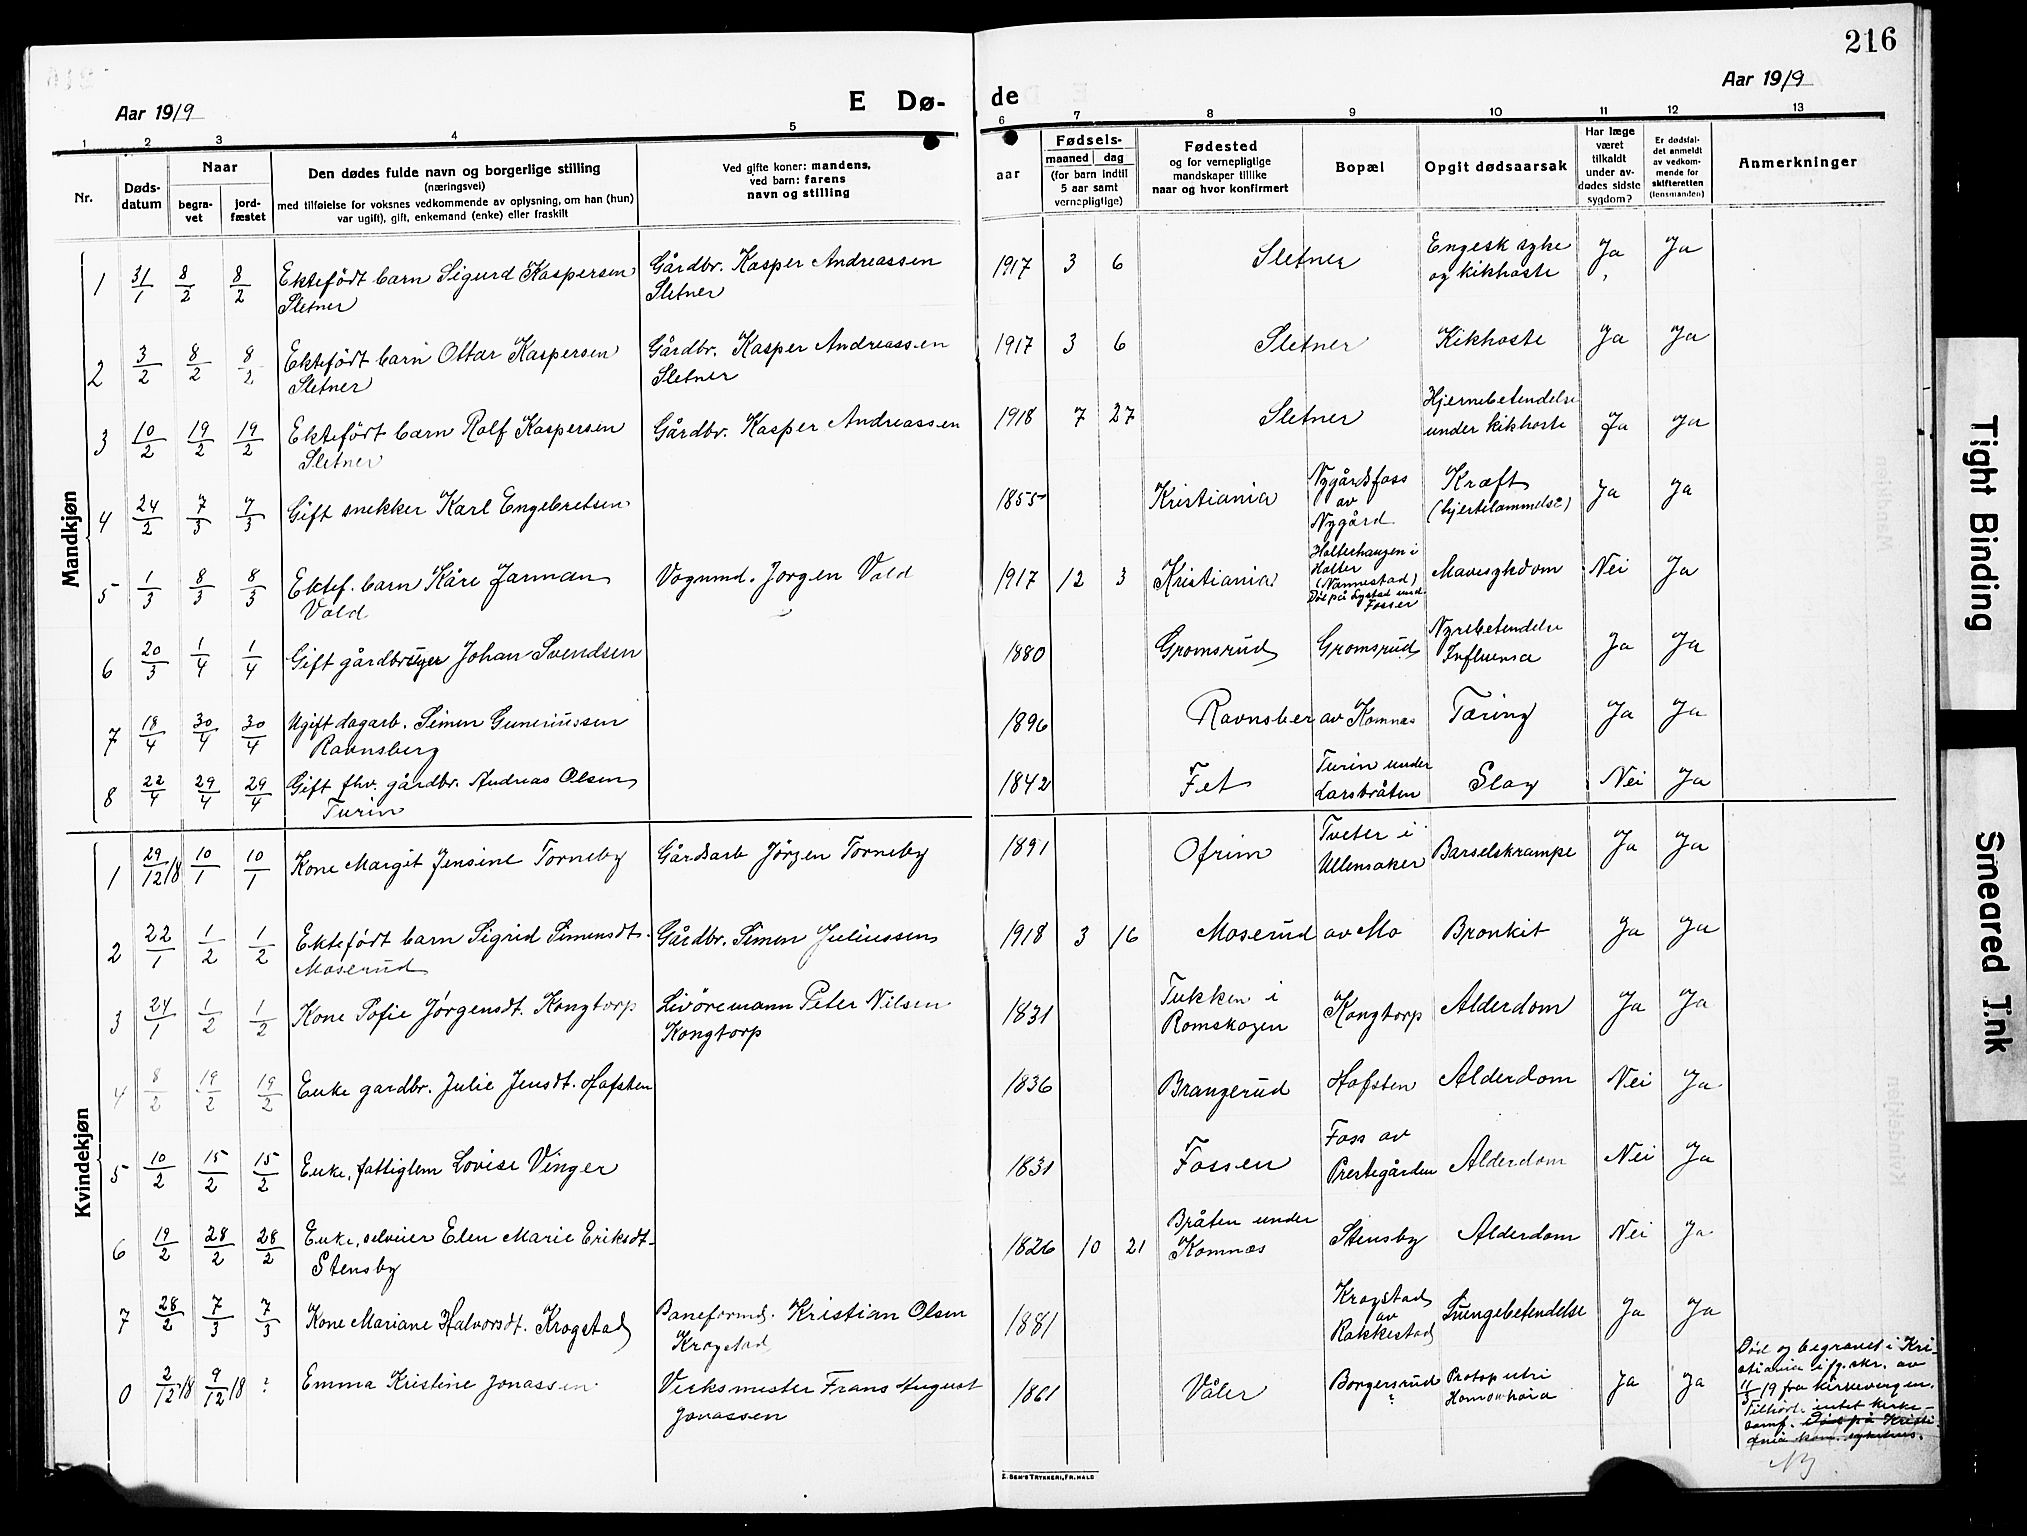 216
Aar 1919
E Dø-
de
Aar 1919
1 2 3 4 5
6 7 8 9 10 11 12 13
Nr.
Døds-
datum
Naar
begra-
vet
jord-
fæstet
Den dødes fulde navn og borgerlige stilling
(næringsvei)
med tilføielse for voksnes vedkommende av oplysning, om han (hun)
var ugift), gift, enkemand (enke) eller fraskilt
Ved gifte koner: mandens,
ved barn: farens
navn og stilling
aar
Fødsels-
maaned dag
(for barn indtil
5 aar samt
vernepligtige)
Fødested
og for vernepligtige
mandskaper tillike
naar og hvor konfirmert
Bopæl
Opgit dødsaarsak
Har læge
været
tilkaldt
under av-
dødes sidste
sygdom?
Er dødsfal-
det anmeldt
av vedkom-
mende for
skifteretten
(lensmanden)
Anmerkninger
Mandkjøn
1 31/1 8/2 8/2 Ektefödt barn Sigurd Kaspersen Gårdbr. Kasper Andreassen 1917 3 6 Sletner Engesk syke Ja Ja
Sletner Sletner og kikhoste
2 3/2 8/2 8/2 Ektefödt barn Ottar Kaspersen Gårdbr. Kasper Andreassen 1917 3 6 Sletner Kikhoste Ja Ja
Sletner Sletner
3 10/2 19/2 19/2 Ektefört barn Rolf Kaspersen Gårdbr. Kasper Andreassen 1918 7 27 Sletner Hjernebetendelse Ja Ja
Sletner under kikhoste
4 24/2 7/3 7/3 Gift snekker Karl Engebretsen 1855 Kristiania Nygårdsfoss Kræft Ja Ja
av (hjertelammelse)
Nygård
5 1/3 8/3 8/3 Ektef. barn Kåre Jarman Vognmd. Jorgen Vold 1917 12 3 Kristiania Holterhaugen i Mavesykdom Nei Ja
Vold Holter
(Nannestad)
Död på Lystad und.
Fosser
6 20/3 1/4 1/4 Gift gårdbruger Johan Svendsen 1880 Gromsrud Gromsrud Nyrebetendelse Ja Ja
Influensa
7 18/4 30/4 30/4 Ugift dagarb. Simen Guneriussen 1896 Ravnsber av Komnæs Tæring Ja Ja
Ravnsberg
8 22/4 29/4 29/4 Gift fhv. gårdbr. Andreas Olsen 1842 Fet Turin under Slag Nei Ja
Turin Larsbråten
Kvindekjøn
1 29/12 18 10/1 10/1 Kone Margit Jensine Torneby Gårdsarb Jörgen Torneby 1891 Ofrim Tveter i Barselskrampe Ja Ja
Ullensaker
2 22/1 1/2 1/2 Ektefödt barn Sigrid Simensdt. Gårdbr. Simen Juliussen 1918 3 16 Moserud av Mo Bronkit Ja Ja
Moserud
3 24/1 1/2 1/2 Kone Sofie Jörgensdt. Kongtorp Livöremann Peter Nilsen 1831 Tukken i Kongtorp Alderdom Ja Ja
Kongtorp Romskogen
4 8/2 19/2 19/2 Enke gardbr. Julie Jensdt. Hofsten 1836 Brangerud Hofsten Alderdom Nei Ja
5 10/2 15/2 15/2 Enke, fattiglem Lovise Vinger 1831 Fossen Foss av Alderdom Nei Ja
Prestegården
6 19/2 28/2 28/2 Enke, selveier Elen Marie Eriksdt. 1826 10 21 Bråten under Stensby Alderdom Nei Ja
Stensby Komnæs
7 28/2 7/3 7/3 Kone Mariane Halvorsdt. Krogstad Baneformd. Kristian Olsen 1881 Krogstad Lungebetendelse Ja Ja
Krogstad av
Rakkestad
0 2/12 18 9/12 18 ? Emma Kristine Jonassen Verksmester Frans August 1861 Våler Borgersrud Ja Ja
Jonassen ?
Död og begravet i Kri-
stiania ifg. skr. av
11/3 19 fra kirkevergen.
Tilhörte intet kirke-
samf. Död på Kristi-
ania kom. sykehus.
E. SEM'S TRYKKERI, FR.HALD
Tight Binding
Smeared Ink